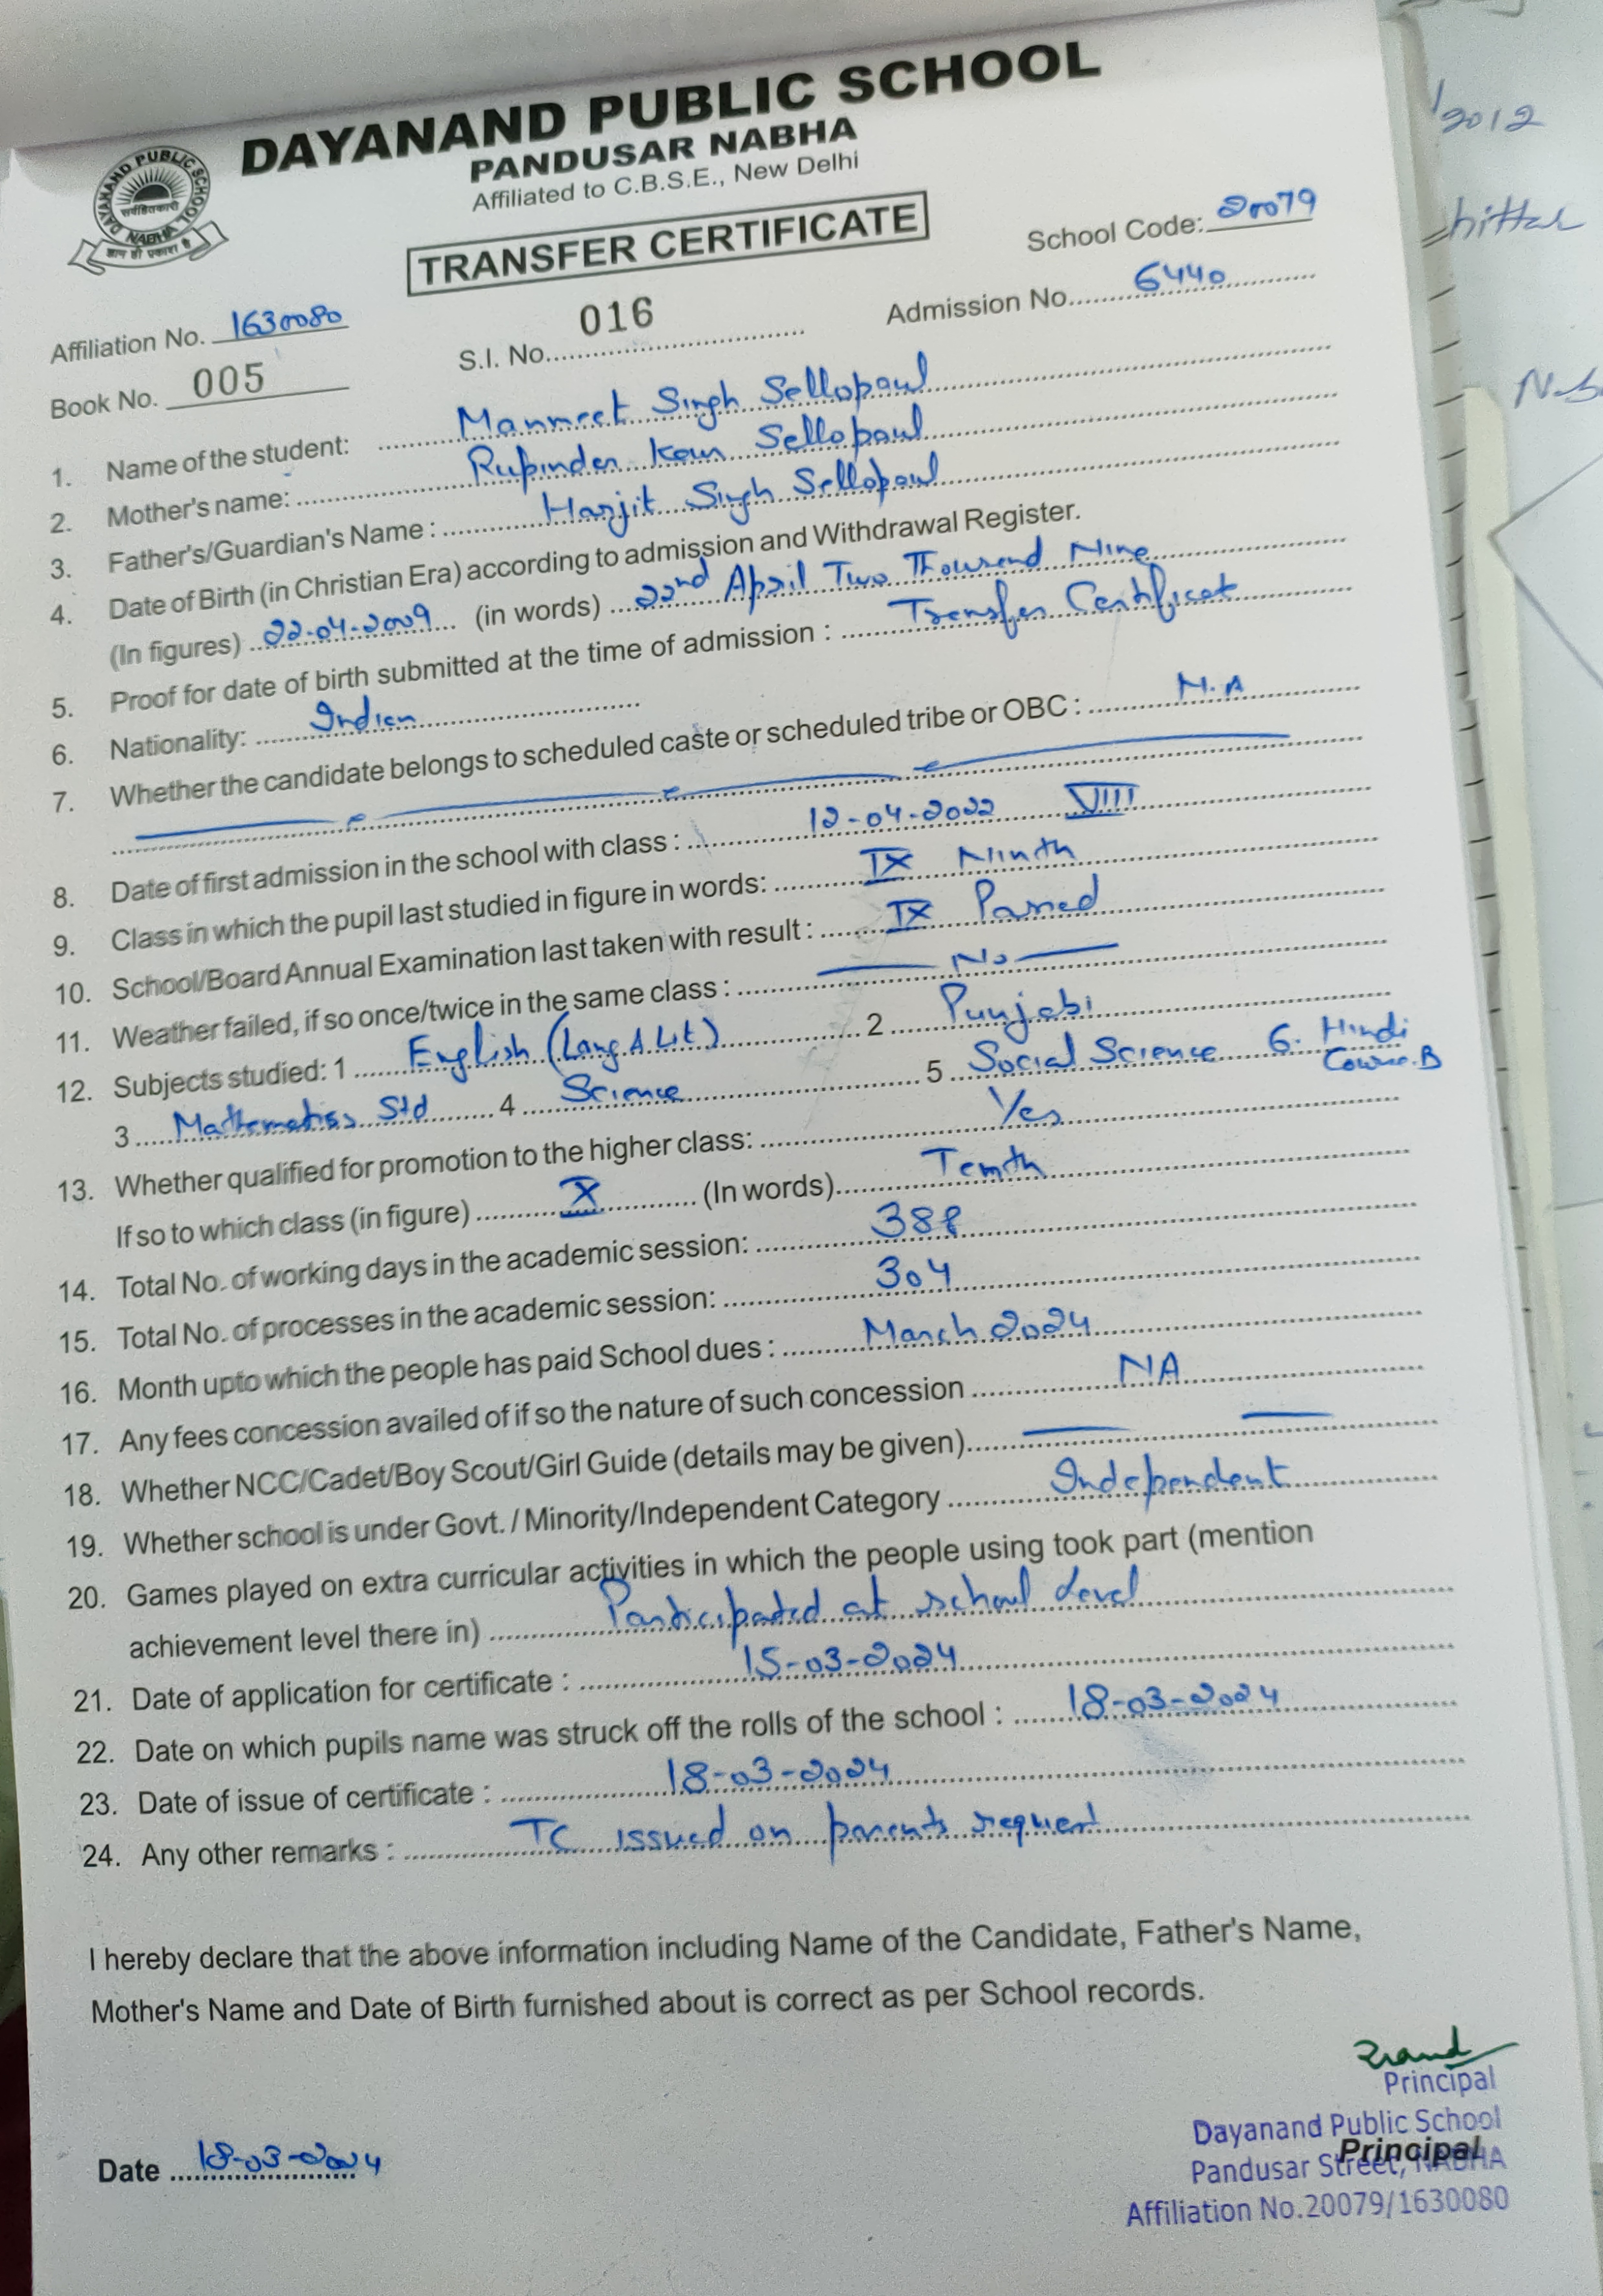 DAYANAND PUBLIC SCHOOL
PANDUSAR NABHA
Affiliated to C.B.S.E., New Delhi
DAYANAND PUBLIC SCHOOL
सर्वहितकारी
NABHA
ज्ञान ही प्रकाश है
TRANSFER CERTIFICATE
School Code: 20079
Affiliation No. 1630080
S.I. No. 016
Admission No. 6440
Book No. 005
1. Name of the student: Manmeet Singh Sellopaul
2. Mother's name: Rupinder Kaur Sellopaul
3. Father's/Guardian's Name : Harjit Singh Sellopaul
4. Date of Birth (in Christian Era) according to admission and Withdrawal Register.
(In figures) 22-04-2009 (in words) 22nd April Two Thousand Nine
5. Proof for date of birth submitted at the time of admission : Transfer Certificat
6. Nationality: Indian
7. Whether the candidate belongs to scheduled caste or scheduled tribe or OBC : N.A
8. Date of first admission in the school with class : 12-04-2022 VIII
9. Class in which the pupil last studied in figure in words: IX Ninth
10. School/Board Annual Examination last taken with result : IX Passed
11. Weather failed, if so once/twice in the same class : No
12. Subjects studied: 1 English (Lang & Lit) 2 Punjabi
3 Mathematics Std 4 Science 5 Social Science 6. Hindi Course.B
13. Whether qualified for promotion to the higher class: Yes
If so to which class (in figure) X (In words) Tenth
14. Total No. of working days in the academic session: 388
15. Total No. of processes in the academic session: 304
16. Month upto which the people has paid School dues : March 2024
17. Any fees concession availed of if so the nature of such concession NA
18. Whether NCC/Cadet/Boy Scout/Girl Guide (details may be given)
19. Whether school is under Govt. / Minority/Independent Category Independent
20. Games played on extra curricular activities in which the people using took part (mention
achievement level there in) Participated at school level
21. Date of application for certificate : 15-03-2024
22. Date on which pupils name was struck off the rolls of the school : 18-03-2024
23. Date of issue of certificate : 18-03-2024
24. Any other remarks : TC issued on parents request
I hereby declare that the above information including Name of the Candidate, Father's Name,
Mother's Name and Date of Birth furnished about is correct as per School records.
Principal
Dayanand Public School
Principal
Pandusar Street, NABHA
Affiliation No.20079/1630080
Date 18-03-2024
2012